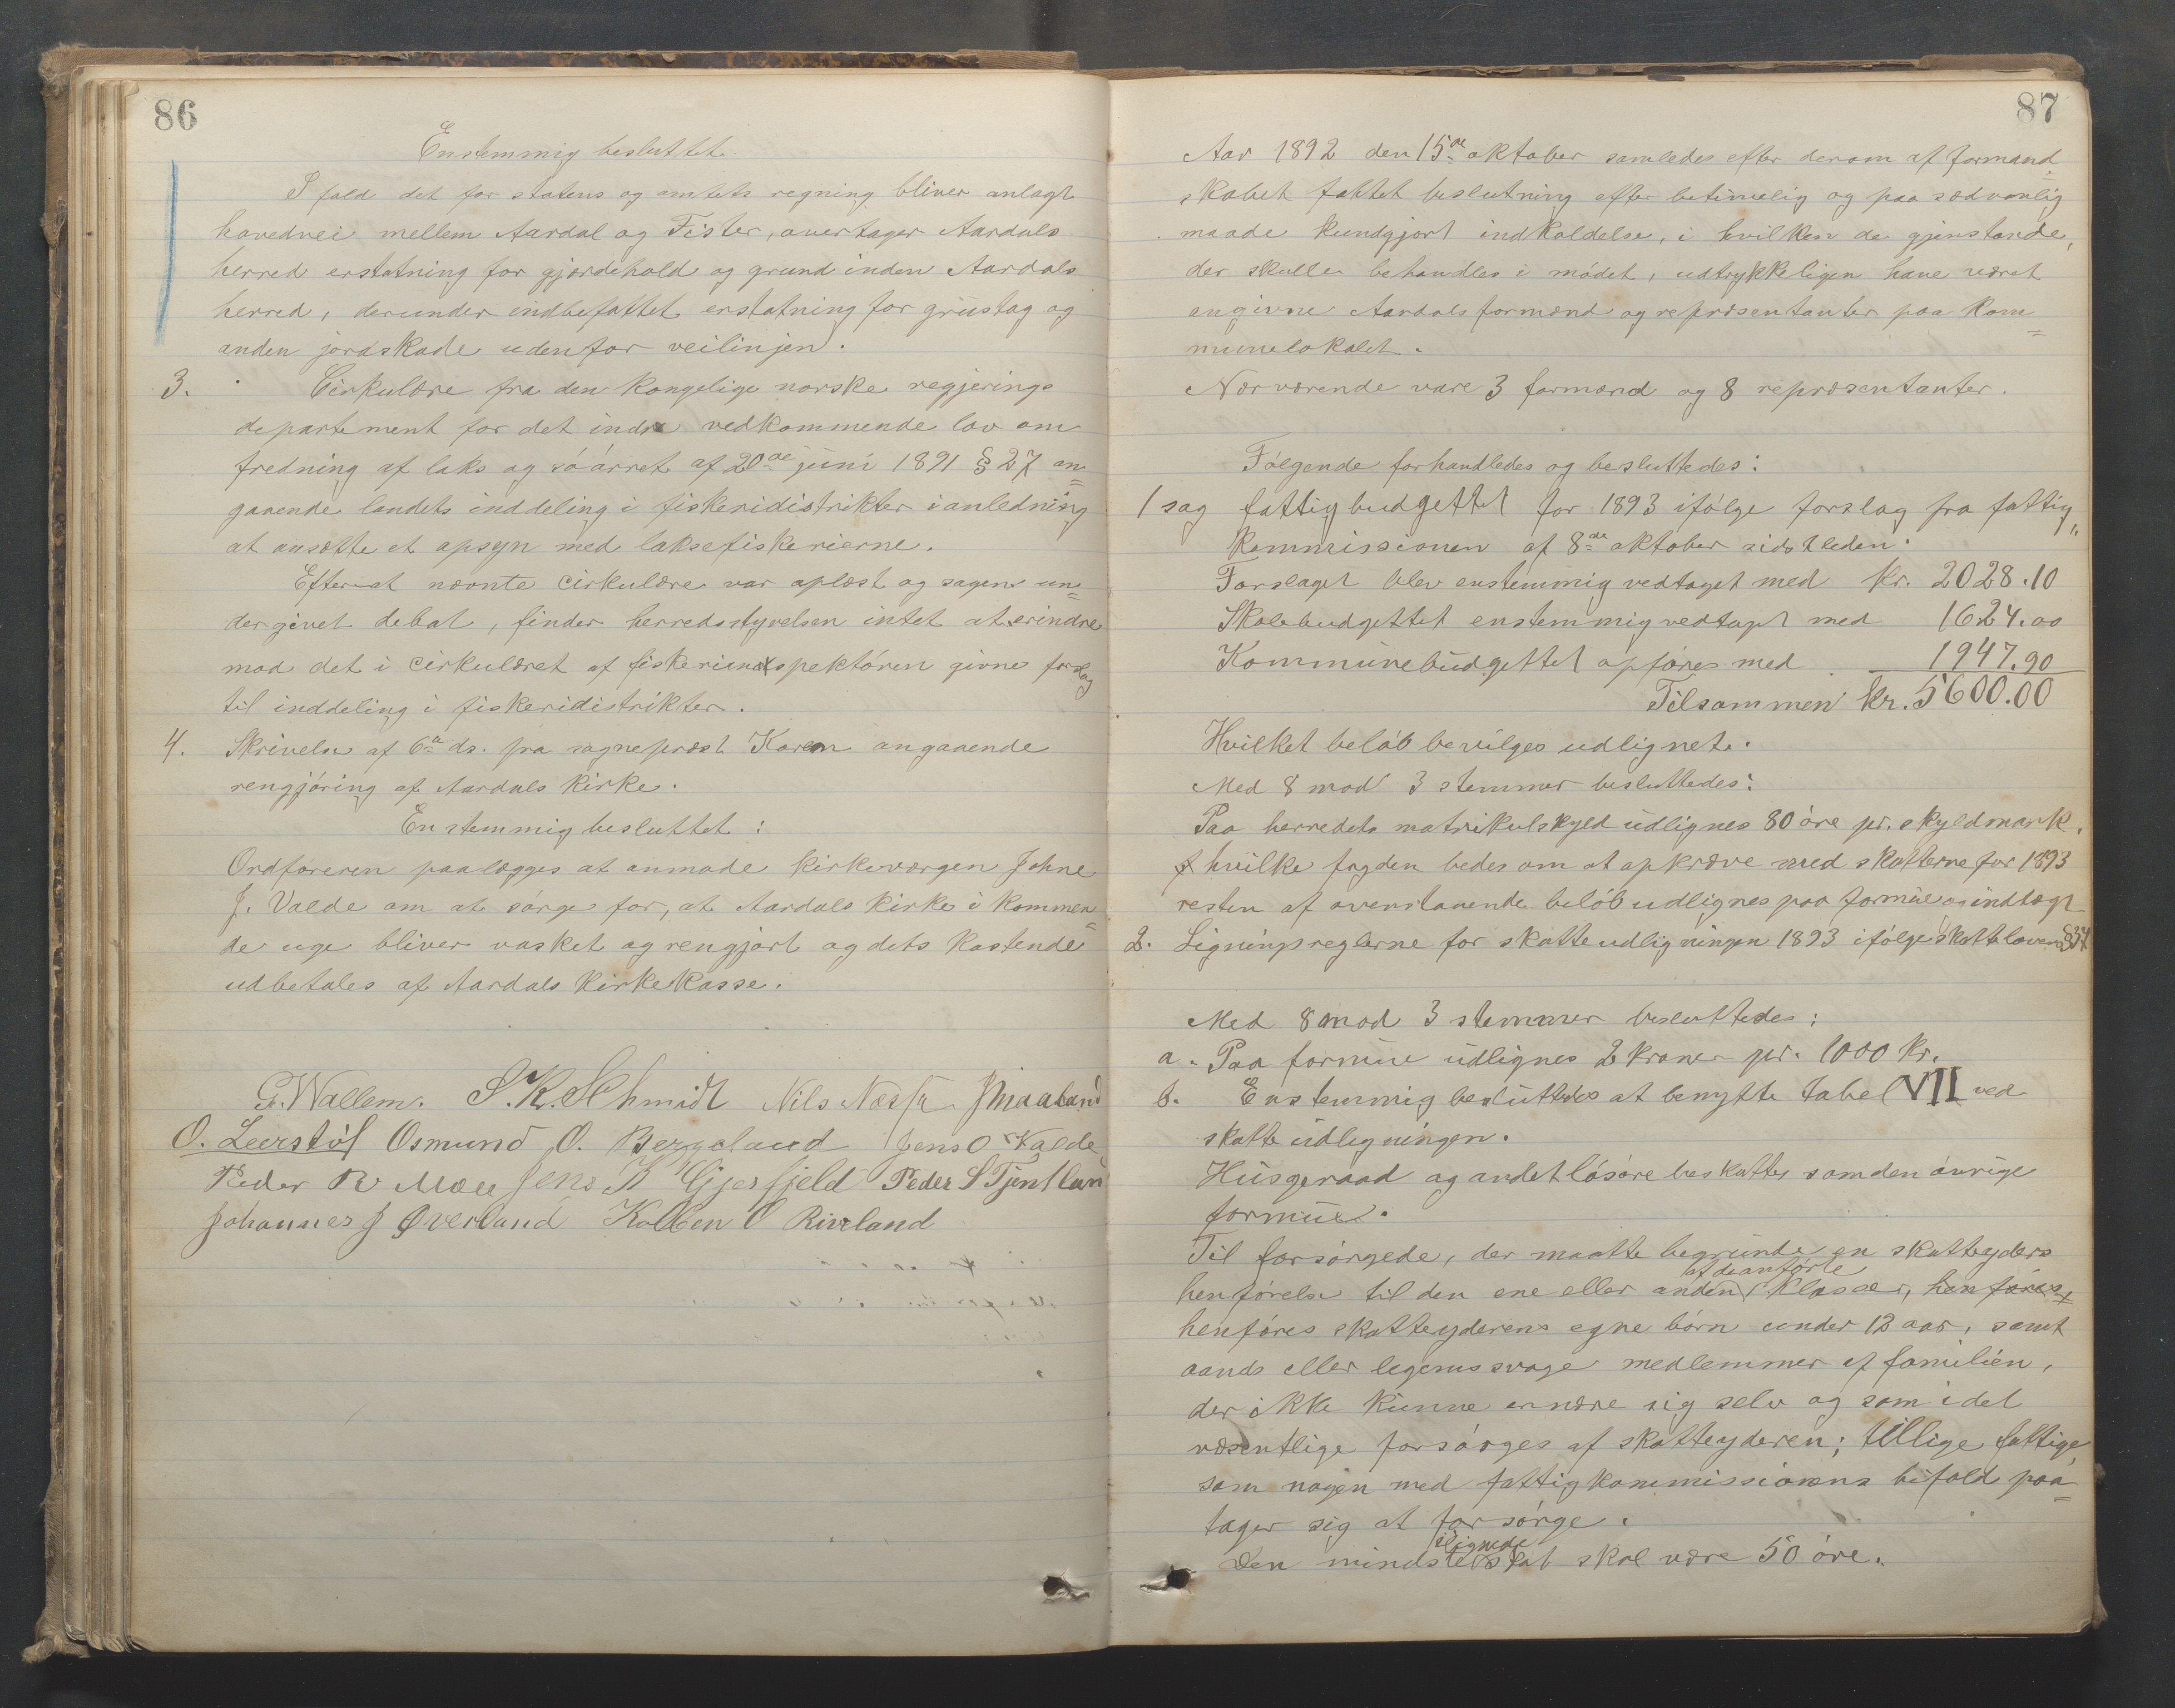 86
Enstemmig besluttet.
I fald det for statens og amtets regning bliver anlagt
hovedvei mellem Aardal og Fister, overtager Aardals
herred erstatning for gjærdehold og grund inden Aardals
herred, derunder indbefattet erstatning for grustag og
anden jordskade udenfor veilinjen.
3. Cirkulære fra den kongelige norske regjerings
departement for det indre vedkommende lov om
fredning af laks og søørret af 20de juni 1891 § 27 an=
gaaende landets inddeling i fiskeridistrikter i anledning
at ansætte et opsyn med laksefiskerierne.
Efterat nævnte cirkulære var oplæst og sagen un=
dergivet debat, finder herredsstyrelsen intet at erindre
mod det i cirkulæret af fiskeriinspektøren givne forslag
til inddeling i fiskeridistrikter.
4. Skrivelse af 6te ds. fra sogneprest Koren angaaende
rengjøring af Aardals kirke.
Enstemmig besluttet:
Ordføreren paalægges at anmode kirkeværgen Johne
J. Valde om at sørge for, at Aardals kirke i kommen=
de uge bliver vasket og rengjort og dets kostende
udbetales af Aardals kirkekasse.
G. Wallem. S. K. Schmidt Nils Næsse J Maaland
O. Leerstøl Osmund O. Bergeland Jens O Valde
Peder R Mæle Jens K Gjerfjeld Peder S Tjentland
Johannes J Øverland Kolben O Riveland
87
Aar 1892 den 15de oktober samledes efter derom af formand=
skabet fattet beslutning efter betimelig og paa sædvanlig
maade kundgjort indkaldelse, i hvilken de gjenstande,
der skulle behandles i mødet, udtrykkeligen have været
angivne Aardals formænd og repræsentanter paa kom=
munelokalet.
Nærværende vare 3 formænd og 8 repræsentanter.
Følgende forhandledes og besluttedes:
1 sag fattigbudgettet for 1893 ifølge forslag fra fattig"
kommissionen af 8de oktober sidstleden.
Forslaget blev enstemmig vedtaget med kr. 2028.10
Skolebudgettet enstemmig vedtaget med 1624.00
Kommunebudgettet opføres med 1947.90
Tilsammen kr. 5600.00
Hvilket beløb bevilges udlignet.
Med 8 mod 3 stemmer besluttedes:
Paa herredets matrikulskyld udlignes 80 øre pr. skyldmark,
hvilke fogden bedes om at opkræve med skatterne for 1893
resten af ovenstaaende beløb udlignes paa formue og indtægt
2. Ligningsreglerne for skatteudligningen 1893 ifølge skatteloven § 34
Med 8 mod 3 stemmer besluttedes:
a. Paa formue udlignes 2 kroner pr. 1000 kr.
b. Enstemmig besluttedes at benytte tabel VII ved
skatteudligningen.
Husgeraad og andet løsøre beskattes som den øvrige
formue.
Til forsørgede, der maatte begrunde en skatteyders
af de anførte
henførelse til den ene eller anden klasser, henføres
henføres skatteyderens egne børn under 12 aar, samt
aands eller legemssvage medlemmer af familien,
der ikke kunne ernære sig selv og som i det
væsentlige forsørges af skatteyderen; tillige fattige,
som nogen med fattigkommissionens bifald paa=
tager sig at forsørge.
ilignede
Den mindste skat skal være 50 øre.